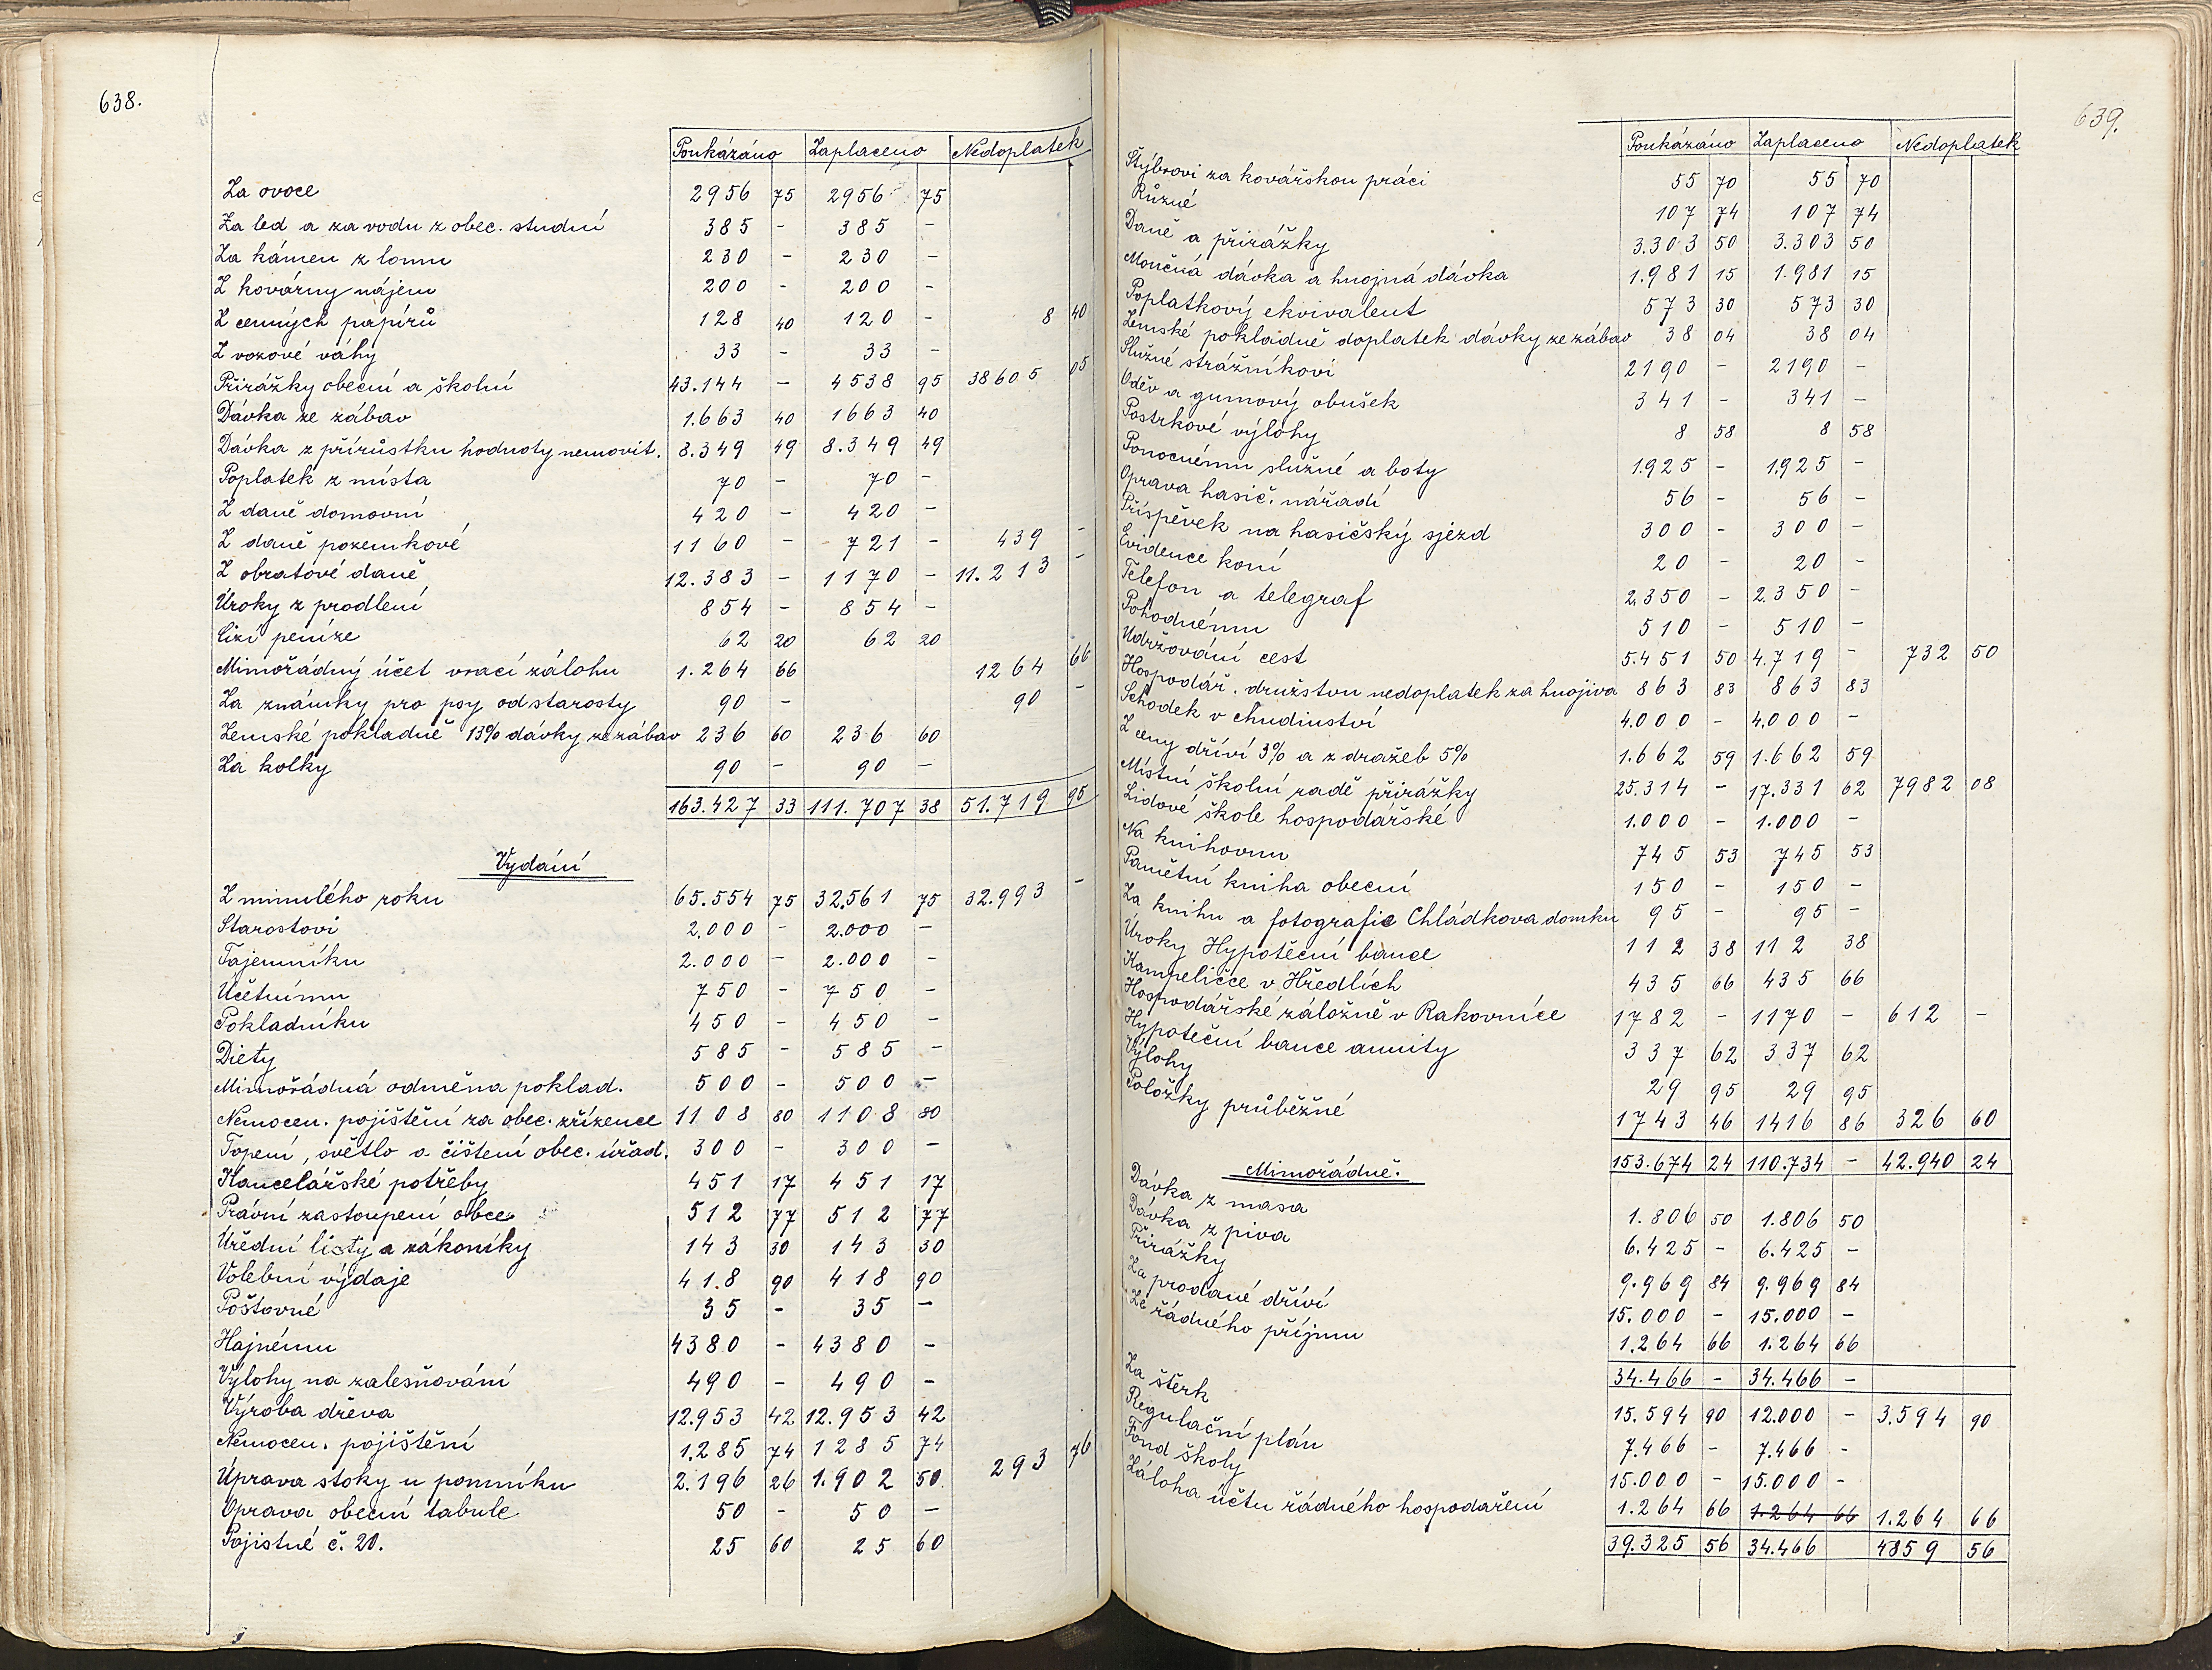 638.
Poukázáno Zaplaceno Nedoplatek
Za ovoce 2956 75 2956 75
Za led a za vodu z obec. studní 385 - 385 -
Za kámen z lomu 230 - 230 -
Z kovárny nájem 200 - 200 -
Z cenných papírů 128 40 120 - 8 40
Z vozové váhy 33 - 33 -
Přirážky obecní a školní 43.144 - 4538 95 38605 05
Dávka ze zábav 1.663 40 1663 40
Dávka z přírůstku hodnoty nemovit. 8.349 49 8.349 49
Poplatek z místa 70 - 70 -
Z daně domovní 420 - 420 -
Z daně pozemkové 1160 - 721 - 439 -
Z obratové daně 12.383 - 1170 - 11.213 -
Úroky z prodlení 854 - 854 -
Cizí peníze 62 20 62 20
Mimořádný účet vrací zálohu 1.264 66 1264 66
Za známky pro psy od starosty 90 - 90 -
Zemské pokladně 13% dávky ze zábav 236 60 236 60
Za kolky 90 - 90 -
163.427 33 111.707 38 51.719 95
Vydání
Z minulého roku 65.554 75 32.561 75 32.993 -
Starostovi 2.000 - 2.000 -
Tajemníku 2.000 - 2.000 -
Účetnímu 750 - 750 -
Pokladníku 450 - 450 -
Diety 585 - 585 -
Mimořádná odměna poklad. 500 - 500 -
Nemocen. pojištění za obec. zřízence 1108 80 1108 80
Topení, světlo a čištění obec. úřad. 300 - 300 -
Kancelářské potřeby 451 17 451 17
Právní zastoupení obce 512 77 512 77
Úřední listy a zákoníky 143 30 143 30
Volební výdaje 41.8 90 418 90
Poštovné 35 - 35 -
Hajnému 4380 - 4380 -
Výlohy na zalesňování 490 - 490 -
Výroba dřeva 12.953 42 12.953 42
Nemocen. pojištění 1.285 74 1285 74
Úprava stoky u pomníku 2.196 26 1.902 50 293 76
Oprava obecní tabule 50 - 50 -
Pojistné č. 20. 25 60 25 60
639.
Poukázáno Zaplaceno Nedoplatek
Štýbrovi za kovářskou práci 55 70 55 70
Různé 107 74 107 74
Daně a přirážky 3.303 50 3.303 50
Moučná dávka a hnojná dávka 1.981 15 1.981 15
Poplatkový ekvivalent 573 30 573 30
Zemské pokladně doplatek dávky ze zábav 38 04 38 04
Služné strážníkovi 2190 - 2190 -
Oděv a gumový obušek 341 - 341 -
Postrkové výlohy 8 58 8 58
Ponocnému služné a boty 1.925 - 1.925 -
Oprava hasič. nářadí 56 - 56 -
Příspěvek na hasičský sjezd 300 - 300 -
Evidence koní 20 - 20 -
Telefon a telegraf 2.350 - 2.350 -
Pohodnému 510 - 510 -
Udržování cest 5.451 50 4.719 - 732 50
Hospodář. družstvu nedoplatek za hnojiva 863 83 863 83
Schodek v chudinství 4.000 - 4.000 -
Z ceny dříví 3% a z dražeb 5% 1.662 59 1.662 59
Místní školní radě přirážky 25.314 - 17.331 62 7982 08
Lidové škole hospodářské 1.000 - 1.000 -
Na knihovnu 745 53 745 53
Pamětní kniha obecní 150 - 150 -
Za knihu a fotografie Chládkova domku 95 - 95 -
Úroky Hypoteční bance 112 38 112 38
Kampeličce v Hředlích 435 66 435 66
Hospodářské záložně v Rakovníce 1782 - 1170 - 612 -
Hypoteční bance anuity 337 62 337 62
Výlohy 29 95 29 95
Položky průběžné 1743 46 1416 86 326 60
153.674 24 110.734 - 42.940 24
Mimořádně.
Dávka z masa 1.806 50 1.806 50
Dávka z piva 6.425 - 6.425 -
Přirážky 9.969 84 9.969 84
Za prodané dříví 15.000 - 15.000 -
Ze řádného příjmu 1.264 66 1.264 66
34.466 - 34.466 -
Za štěrk 15.594 90 12.000 - 3.594 90
Regulační plán 7.466 - 7.466 -
Fond školy 15.000 - 15.000 -
Záloha účtu řádného hospodaření 1.264 66 1.264 66 1.264 66
39.325 56 34.466 4859 56